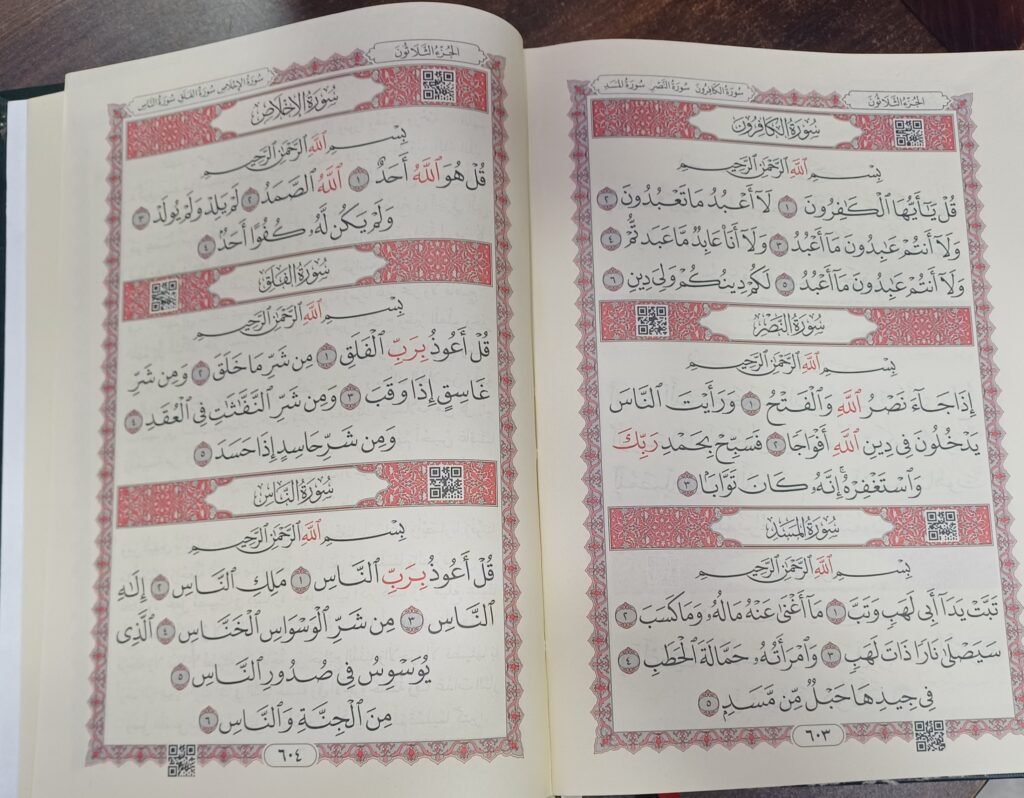 الجُزْءُ الثَّلَاثُونَ
سُورَةُ الكَافِرُونَ سُورَةُ النَّصْرِ سُورَةُ المَسَدِ
سُورَةُ الكَافِرُونَ
بِسْمِ ٱللَّهِ ٱلرَّحْمَٰنِ ٱلرَّحِيمِ
قُلْ يَٰٓأَيُّهَا ٱلْكَٰفِرُونَ ١ لَآ أَعْبُدُ مَا تَعْبُدُونَ ٢
وَلَآ أَنتُمْ عَٰبِدُونَ مَآ أَعْبُدُ ٣ وَلَآ أَنَا۠ عَابِدٌ مَّا عَبَدتُّمْ ٤
وَلَآ أَنتُمْ عَٰبِدُونَ مَآ أَعْبُدُ ٥ لَكُمْ دِينُكُمْ وَلِىَ دِينِ ٦
سُورَةُ النَّصْرِ
بِسْمِ ٱللَّهِ ٱلرَّحْمَٰنِ ٱلرَّحِيمِ
إِذَا جَآءَ نَصْرُ ٱللَّهِ وَٱلْفَتْحُ ١ وَرَأَيْتَ ٱلنَّاسَ
يَدْخُلُونَ فِى دِينِ ٱللَّهِ أَفْوَاجًا ٢ فَسَبِّحْ بِحَمْدِ رَبِّكَ
وَٱسْتَغْفِرْهُ ۚ إِنَّهُۥ كَانَ تَوَّابًۢا ٣
سُورَةُ المَسَدِ
بِسْمِ ٱللَّهِ ٱلرَّحْمَٰنِ ٱلرَّحِيمِ
تَبَّتْ يَدَآ أَبِى لَهَبٍ وَتَبَّ ١ مَآ أَغْنَىٰ عَنْهُ مَالُهُۥ وَمَا كَسَبَ ٢
سَيَصْلَىٰ نَارًا ذَاتَ لَهَبٍ ٣ وَٱمْرَأَتُهُۥ حَمَّالَةَ ٱلْحَطَبِ ٤
فِى جِيدِهَا حَبْلٌ مِّن مَّسَدٍۭ ٥
٦٠٣
الجُزْءُ الثَّلَاثُونَ
سُورَةُ الإِخْلَاصِ سُورَةُ الفَلَقِ سُورَةُ النَّاسِ
سُورَةُ الإِخْلَاصِ
بِسْمِ ٱللَّهِ ٱلرَّحْمَٰنِ ٱلرَّحِيمِ
قُلْ هُوَ ٱللَّهُ أَحَدٌ ١ ٱللَّهُ ٱلصَّمَدُ ٢ لَمْ يَلِدْ وَلَمْ يُولَدْ ٣
وَلَمْ يَكُن لَّهُۥ كُفُوًا أَحَدٌۢ ٤
سُورَةُ الفَلَقِ
بِسْمِ ٱللَّهِ ٱلرَّحْمَٰنِ ٱلرَّحِيمِ
قُلْ أَعُوذُ بِرَبِّ ٱلْفَلَقِ ١ مِن شَرِّ مَا خَلَقَ ٢ وَمِن شَرِّ
غَاسِقٍ إِذَا وَقَبَ ٣ وَمِن شَرِّ ٱلنَّفَّٰثَٰتِ فِى ٱلْعُقَدِ ٤
وَمِن شَرِّ حَاسِدٍ إِذَا حَسَدَ ٥
سُورَةُ النَّاسِ
بِسْمِ ٱللَّهِ ٱلرَّحْمَٰنِ ٱلرَّحِيمِ
قُلْ أَعُوذُ بِرَبِّ ٱلنَّاسِ ١ مَلِكِ ٱلنَّاسِ ٢ إِلَٰهِ
ٱلنَّاسِ ٣ مِن شَرِّ ٱلْوَسْوَاسِ ٱلْخَنَّاسِ ٤ ٱلَّذِى
يُوَسْوِسُ فِى صُدُورِ ٱلنَّاسِ ٥
مِنَ ٱلْجِنَّةِ وَٱلنَّاسِ ٦
٦٠٤